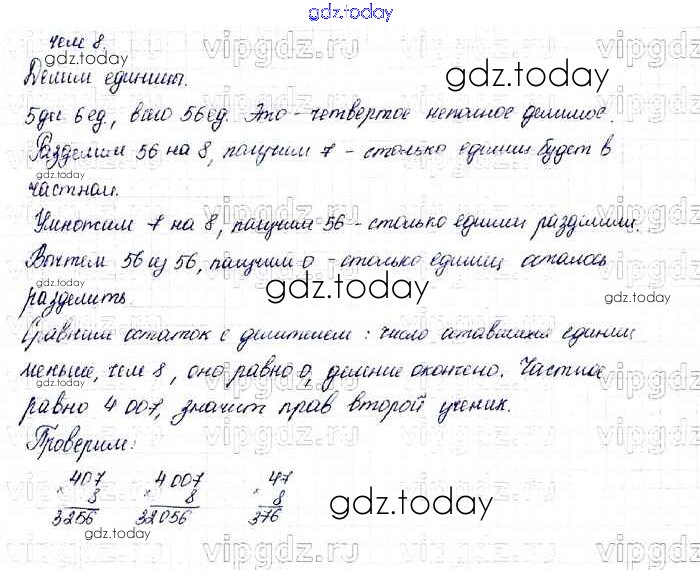 gdz.today
чем 8.
Делим единицы.
5 дес 6 ед., всего 56 ед. Это - четвертое неполное делимое.
Разделим 56 на 8, получим 7 - столько единиц будет в
частном.
Умножим 7 на 8, получим 56 - столько единиц разделили.
Вычтем 56 из 56, получили 0 - столько единиц осталось
разделить.
Сравним остаток с делителем: число оставшихся единиц
меньше, чем 8, оно равно 0, деление окончено. Частное
равно 4 007, значит прав второй ученик.
Проверим:
407 4 007 47
× 8 × 8 × 8
3256 32 056 376
gdz.today
vipgdz.ru